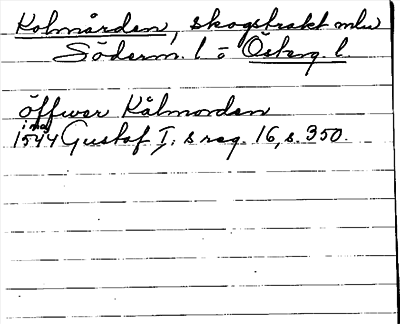 Kolmården, skogstrakt mellan
Söderm. l. o Österg. l.
öffwer Kålmorden
i maj
1544 Gustaf I:s reg. 16, s. 350.